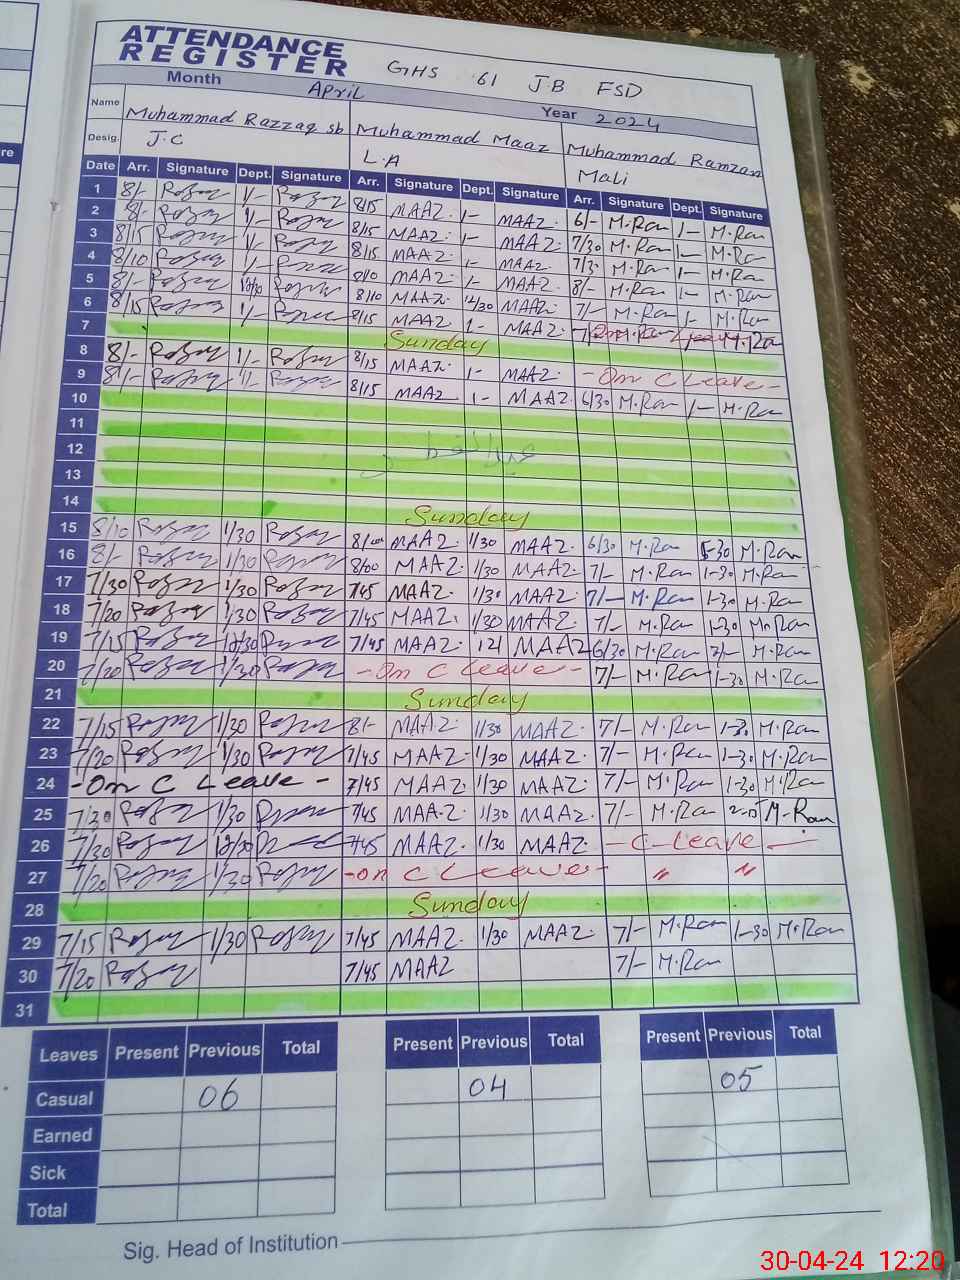 ATTENDANCE
REGISTER
GHS 61 JB FSD
Month April Year 2024
Name Muhammad Razzaq sb Muhammad Maaz Muhammad Ramzan
Desig. J.C L.A Mali
Date Arr. Signature Dept. Signature Arr. Signature Dept. Signature Arr. Signature Dept. Signature
1 8/- 1/- 8/15 MAAZ. 1- MAAZ. 6/- M.Ran 1- M.Ran
2 8/- 1/- 8/15 MAAZ. 1- MAAZ. 7/30 M.Ran 1- M.Ran
3 8/15 1/- 8/15 MAAZ. 1- MAAZ. 7/30 M.Ran 1- M.Ran
4 8/10 1/- 8/10 MAAZ. 1- MAAZ. 8/- M.Ran 1- M.Ran
5 8/- 8/10 MAAZ. 12/30 MAAZ. 7/- M.Ran 1- M.Ran
6 8/15 1/- 8/15 MAAZ. 1- MAAZ. M.Ran
7 Sunday
8 8/- 1/- 8/15 MAAZ. 1- MAAZ. -On C Leave-
9 8/- 1/- 8/15 MAAZ 1- MAAZ. 6/30 M.Ran 1- M.Ran
10
11
12 عید الفطر
13
14 Sunday
15 8/10 1/30 MAAZ. 1/30 MAAZ. 6/30 M.Ran 1-30 M.Ran
16 8/- 1/30 8/00 MAAZ. 1/30 MAAZ. 7/- M.Ran 1-30 M.Ran
17 7/30 1/30 7/45 MAAZ. 1/30 MAAZ. 7/- M.Ran 1-30 M.Ran
18 7/20 1/30 7/45 MAAZ. 1/30 MAAZ. 7/- M.Ran 1-30 M.Ran
19 7/15 12/30 7/45 MAAZ. MAAZ 6/30 M.Ran M.Ran
20 7/20 1/30 -On C Leave- 7/- M.Ran 1-30 M.Ran
21 Sunday
22 7/15 1/30 8/- MAAZ. 1/30 MAAZ. 7/- M.Ran 1-30 M.Ran
23 7/20 1/30 7/45 MAAZ. 1/30 MAAZ. 7/- M.Ran 1-30 M.Ran
24 -On C Leave- 7/45 MAAZ. 1/30 MAAZ. 7/- M.Ran 1-30 M.Ran
25 7/30 1/30 7/45 MAAZ. 1/30 MAAZ. 7/- M.Ran M.Ran
26 7/30 12/30 7/45 MAAZ. 1/30 MAAZ. -C-Leave-
27 7/20 1/30 -on C Leave- " "
28 Sunday
29 7/15 1/30 7/45 MAAZ. 1/30 MAAZ. 7/- M.Ran 1-30 M.Ran
30 7/20 7/45 MAAZ 7/- M.Ran
31
Leaves Present Previous Total Present Previous Total Present Previous Total
Casual 06 04 05
Earned
Sick
Total
Sig. Head of Institution
30-04-24 12:20